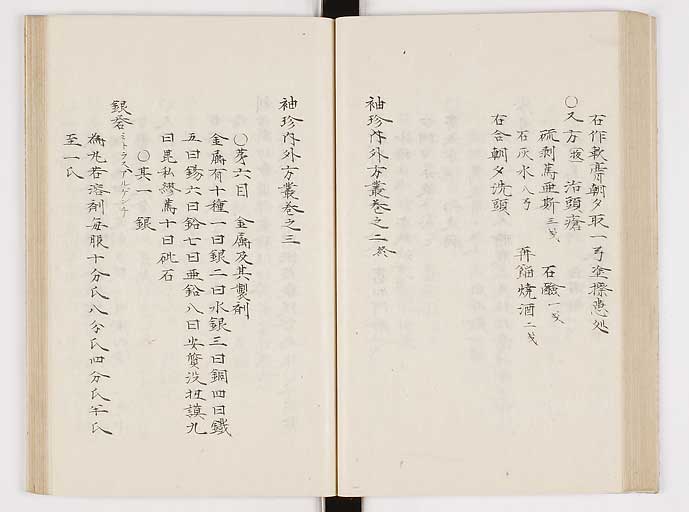 右作軟膏朝夕取一弓塗擦患処
〇又方 液 治頭瘡
硫剥篤亜斯 三戔 石鹼 一戔
石灰水 八弓 再餾焼酒 二戔
右合朝夕洗頭
袖珍内外方叢巻之二終
袖珍内外方叢巻之三
〇第六目 金属及其製剤
金属有十種一曰銀二曰水銀三曰銅四曰鐵
五曰錫六曰鉛七曰亜鉛八曰安質没扭謨九
曰毘私繆篤十曰砒石
〇其一 銀
銀
為丸若溶剤毎服十分氏八分氏四分氏半氏
至一氏